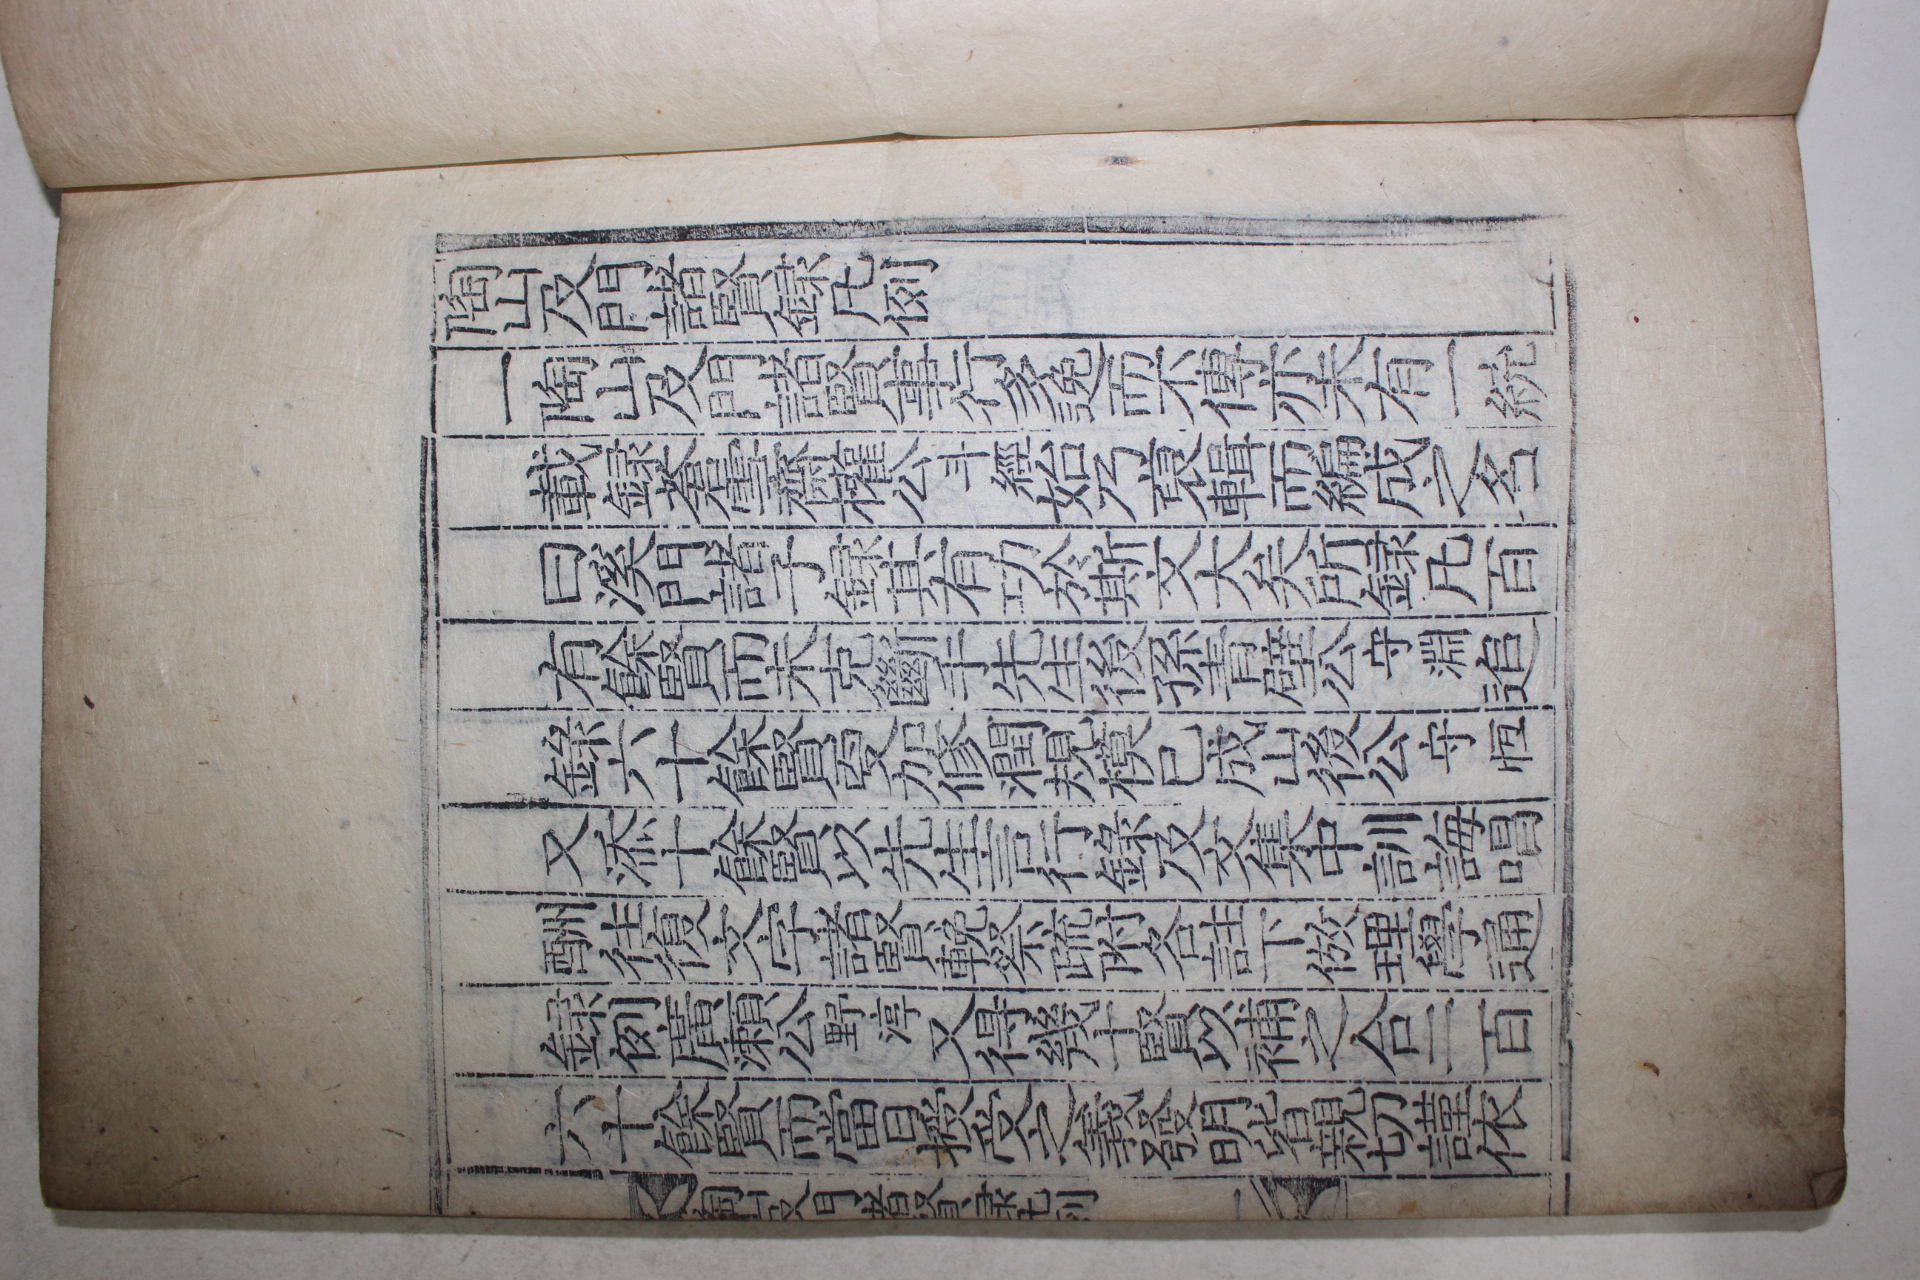 陶山及門諸賢錄凡例
一陶山及門諸賢事行多逸而不傳亦未有一統
載錄蒼雪齋權公斗經始乃裒輯而編成之名
曰溪門諸子錄其有功於斯文大矣所錄凡百
有餘賢而未克斷手先生後孫青壁公守淵追
錄六十餘賢更加修潤規模已成山後公守恒
又添十餘賢以先生言行錄及文集中訓誨唱
酬往復文字諸賢輓祭疏附合註下倣理學通
錄例廣瀨公野淳又得幾十賢以補之合二百
六十餘賢而當日授受之義發明皆親切謹依
陶山及門諸賢錄凡例 一